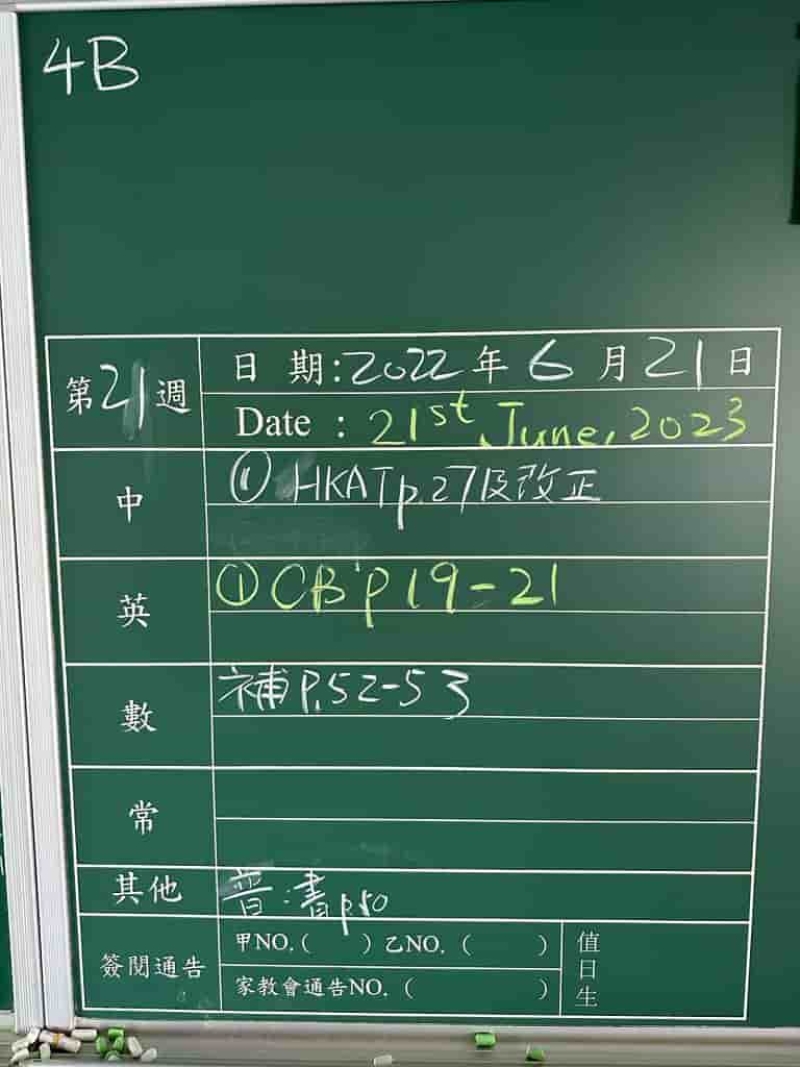 4B
第21週
日 期:2022年6月21日
Date : 21st June, 2023
中
① HKAT p.27及改正
英
① CB p19-21
數
補P.52-53
常
其他
普:書p.50
簽閱通告
甲NO.( ) 乙NO. ( )
家教會通告NO. ( )
值日生